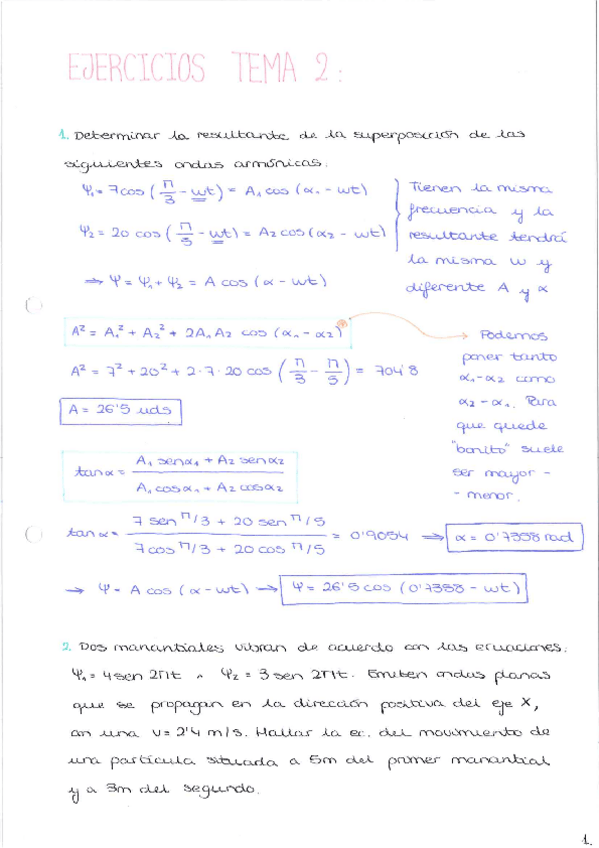 EJERCICIOS TEMA 2:
1. Determinar la resultante de la superposición de las
siguientes ondas armónicas.
Ψ₁= 7cos (π/3 - wt) = A₁ cos (α₁ - wt)
Ψ₂ = 20 cos (π/5 - wt) = A₂ cos (α₂ - wt)
Tienen la misma
frecuencia y la
resultante tendrá
la misma w y
diferente A y α
⇒ Ψ = Ψ₁ + Ψ₂ = A cos (α - wt)
A² = A₁² + A₂² + 2A₁A₂ cos (α₁ - α₂)
Podemos
poner tanto
α₁-α₂ como
α₂ - α₁. Para
que quede
"bonito" suele
ser mayor -
- menor.
A² = 7² + 20² + 2·7·20 cos (π/3 - π/5) = 704'8
A = 26'5 uds
tan α = (A₁ sen α₁ + A₂ sen α₂) / (A₁ cos α₁ + A₂ cos α₂)
tan α = (7 sen π/3 + 20 sen π/5) / (7 cos π/3 + 20 cos π/5) = 0'9054 → α = 0'7358 rad
→ Ψ = A cos (α - wt) → Ψ = 26'5 cos (0'7358 - wt)
2. Dos manantiales vibran de acuerdo con las ecuaciones:
Ψ₁ = 4 sen 2πt ^ Ψ₂ = 3 sen 2πt. Emiten ondas planas
que se propagan en la dirección positiva del eje X,
on una v= 2'4 m/s. Hallar la ec. del movimiento de
una partícula situada a 5m del primer manantial
y a 3m del segundo.
1.